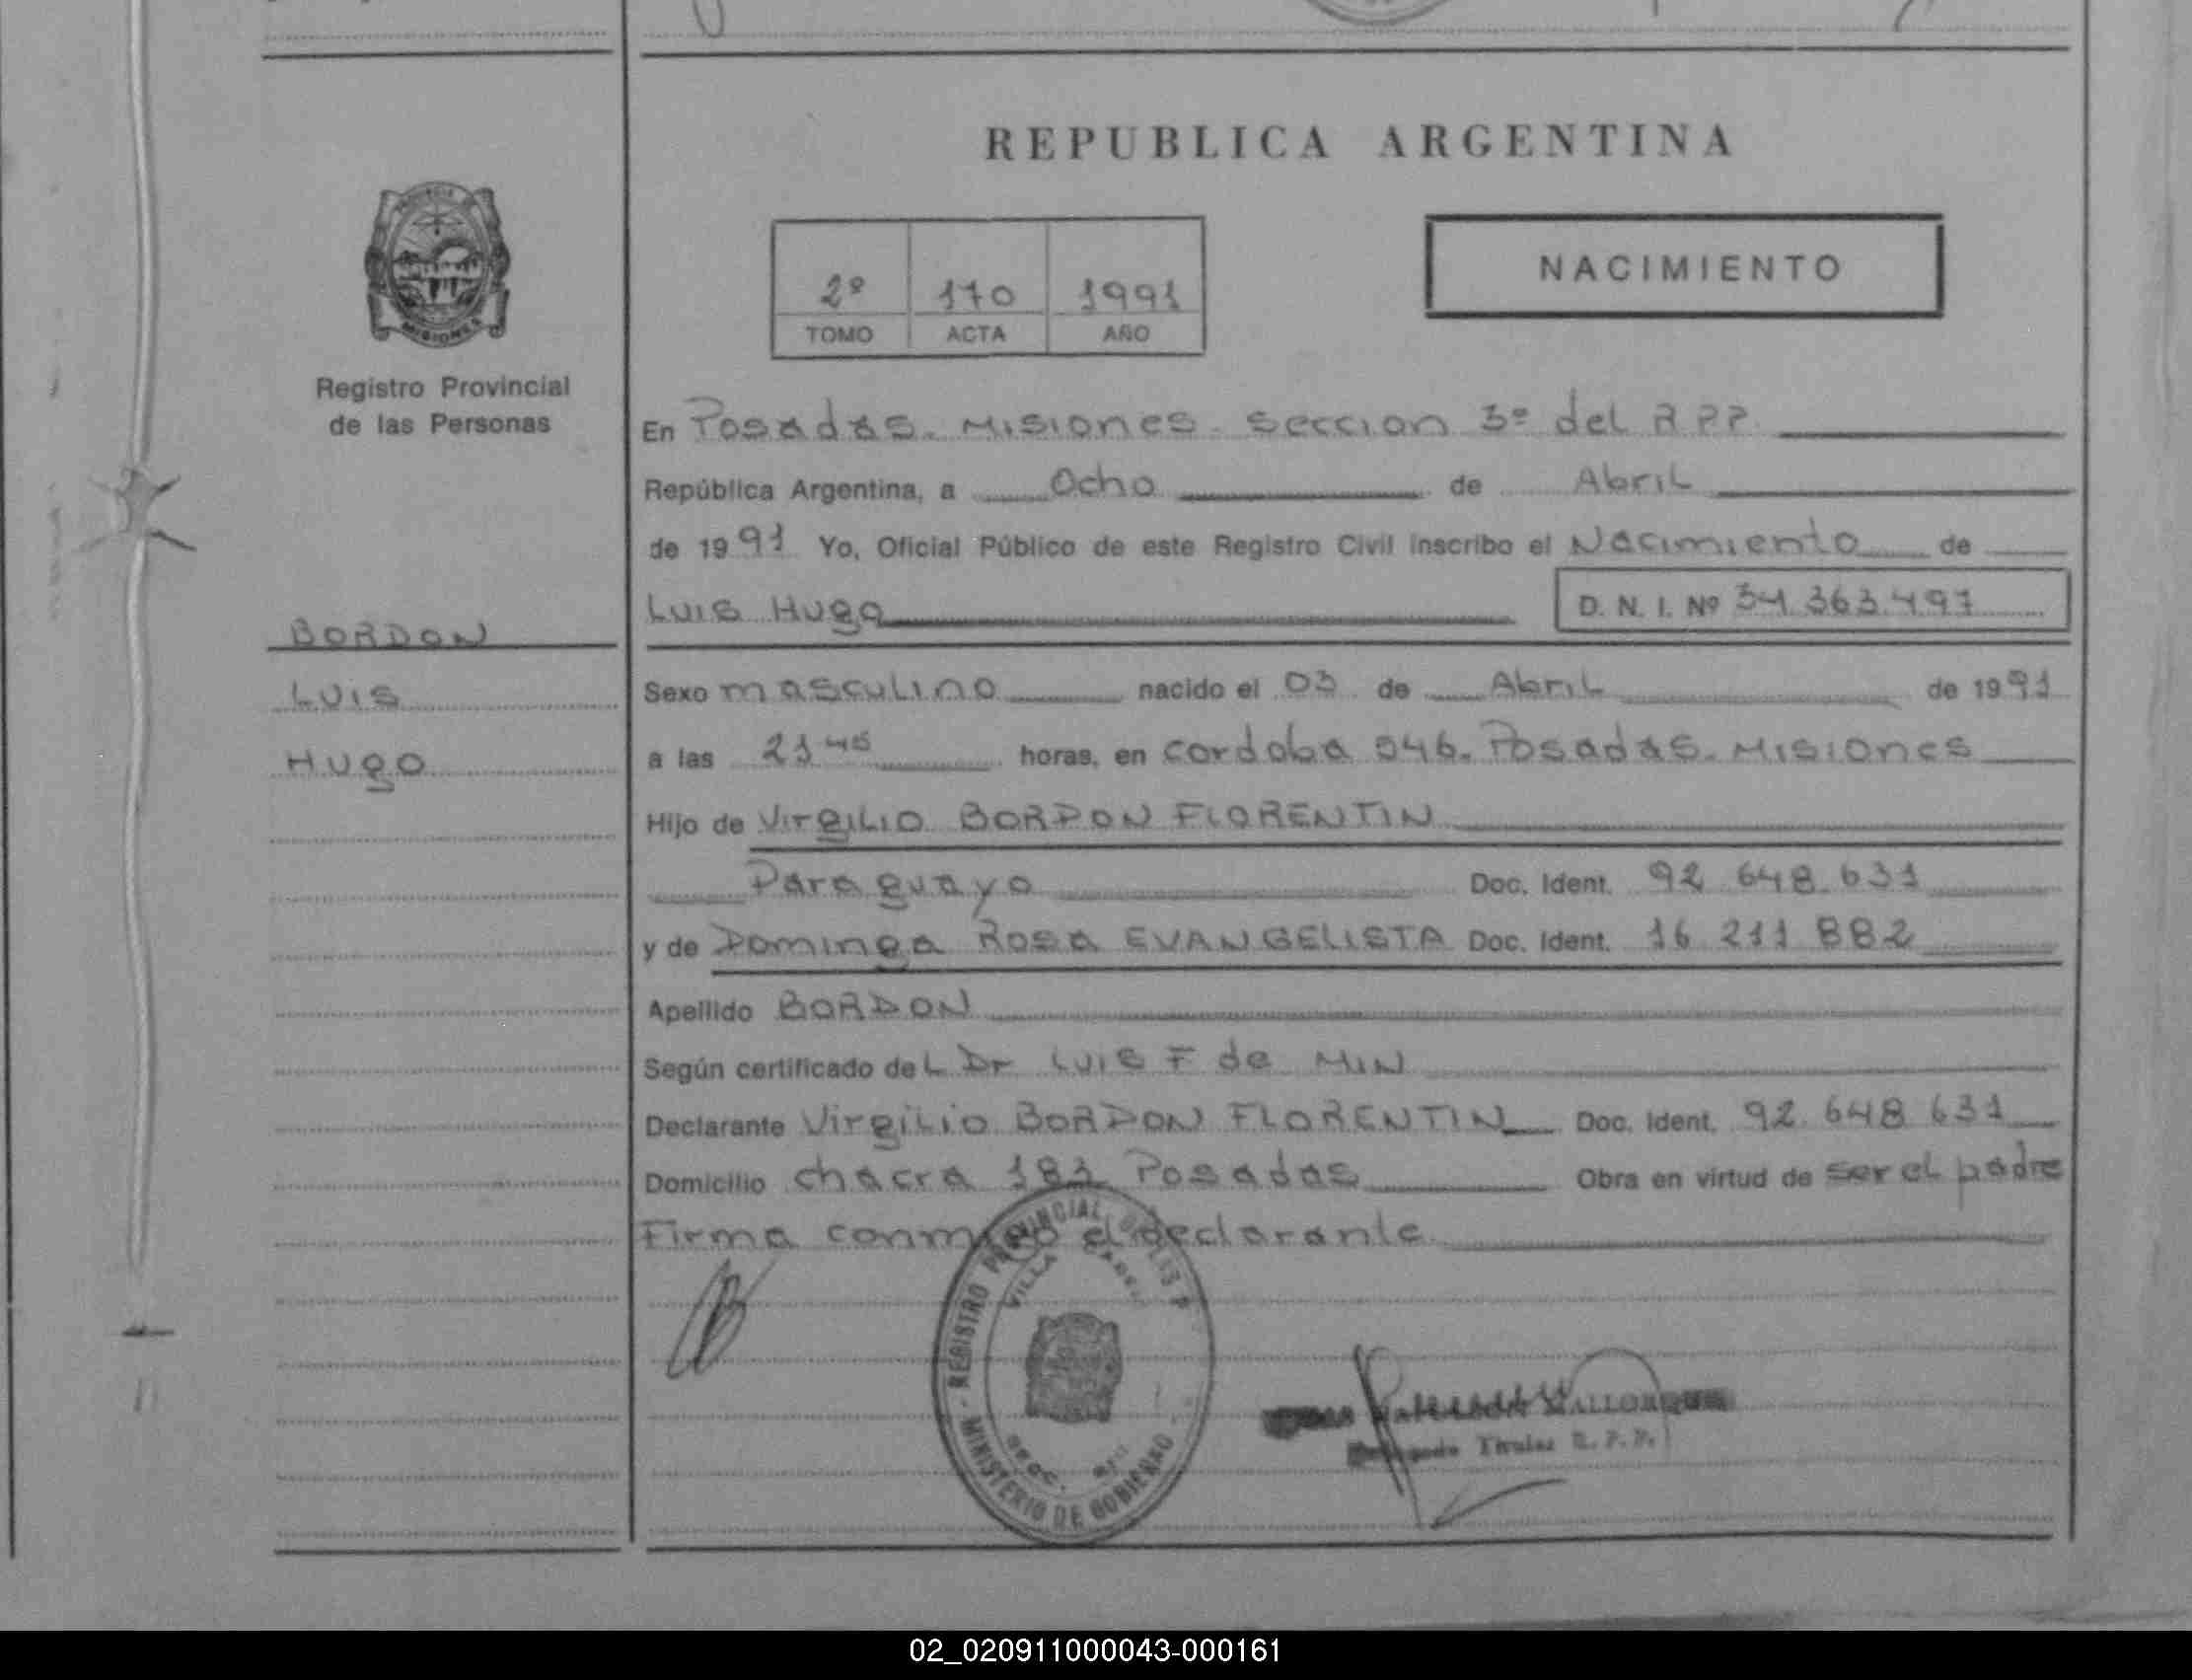 REPUBLICA ARGENTINA
MISIONES
Registro Provincial
de las Personas
2º 170 1991
TOMO ACTA AÑO
NACIMIENTO
En Posadas. Misiones. seccion 3º del RPP
República Argentina, a Ocho de Abril
de 1991 Yo, Oficial Público de este Registro Civil inscribo el Nacimiento de
Luis Hugo D. N. I. Nº 34.363.497
BORDON
LUIS
HUgO
Sexo masculino nacido el 03 de Abril de 1991
a las 21 45 horas, en cordoba 546. Posadas. Misiones
Hijo de Virgilio BORDON FLORENTIN
Paraguayo Doc. Ident. 92 648.631
y de Dominga Rosa EVANGELISTA Doc. Ident. 16 211 882
Apellido BORDON
Según certificado del Dr Luis F de MIN
Declarante Virgilio BORDON FLORENTIN Doc. Ident. 92.648 631
Domicilio chacra 181 Posadas Obra en virtud de ser el padre
Firma conmigo el declarante
REGISTRO PROVINCIAL
VILLA
SECC.
MINISTERIO DE GOBIERNO
Titular R. P. P.
02_020911000043-000161